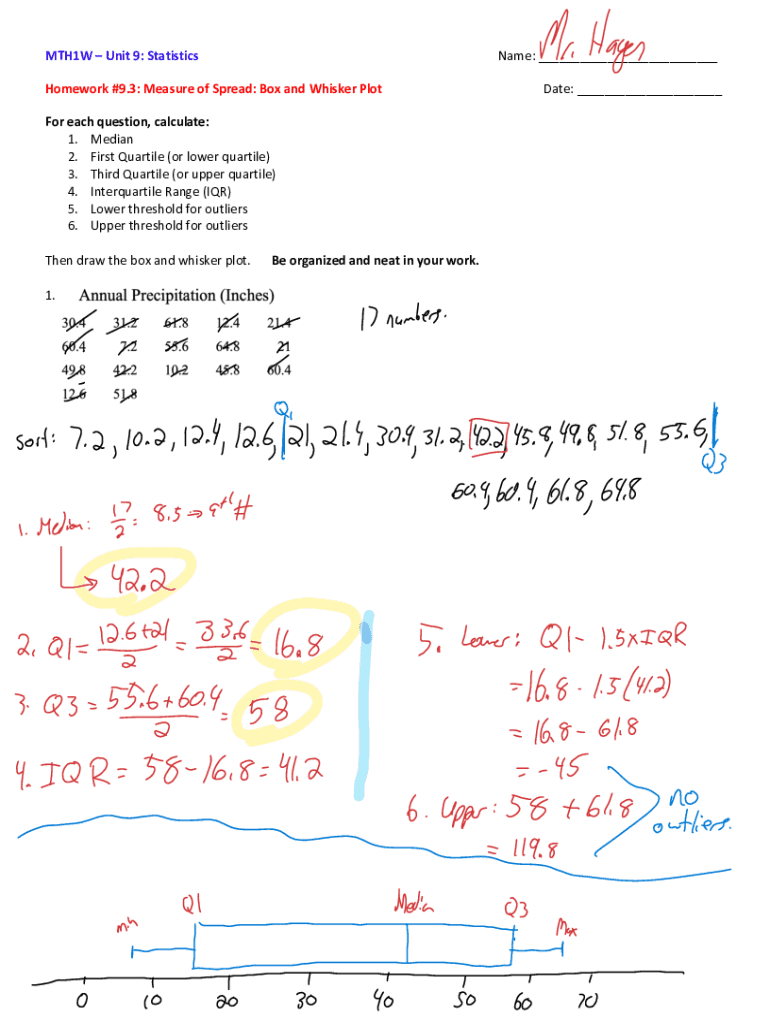 MTH1W – Unit 9: Statistics
Name: Mr. Hayes
Homework #9.3: Measure of Spread: Box and Whisker Plot
Date:
For each question, calculate:
1. Median
2. First Quartile (or lower quartile)
3. Third Quartile (or upper quartile)
4. Interquartile Range (IQR)
5. Lower threshold for outliers
6. Upper threshold for outliers
Then draw the box and whisker plot. Be organized and neat in your work.
1. Annual Precipitation (Inches)
30.4 31.2 61.8 12.4 21.4
60.4 7.2 55.6 64.8 21
49.8 42.2 10.2 45.8 60.4
12.6 51.8
17 numbers.
Q1
Sort: 7.2, 10.2, 12.4, 12.6, 21, 21.4, 30.4, 31.2, 42.2, 45.8, 49.8, 51.8, 55.6,
Q3
60.4, 60.4, 61.8, 64.8
1. Median: 17/2 = 8.5 ⇒ 9th #
→ 42.2
2. Q1 = 12.6+21/2 = 33.6/2 = 16.8
3. Q3 = 55.6+60.4/2 = 58
4. IQR = 58-16.8 = 41.2
5. Lower: Q1 - 1.5xIQR
= 16.8 - 1.5(41.2)
= 16.8 - 61.8
= -45
6. Upper: 58 + 61.8
= 119.8
no
outliers.
min Q1 Median Q3 Max
0 10 20 30 40 50 60 70